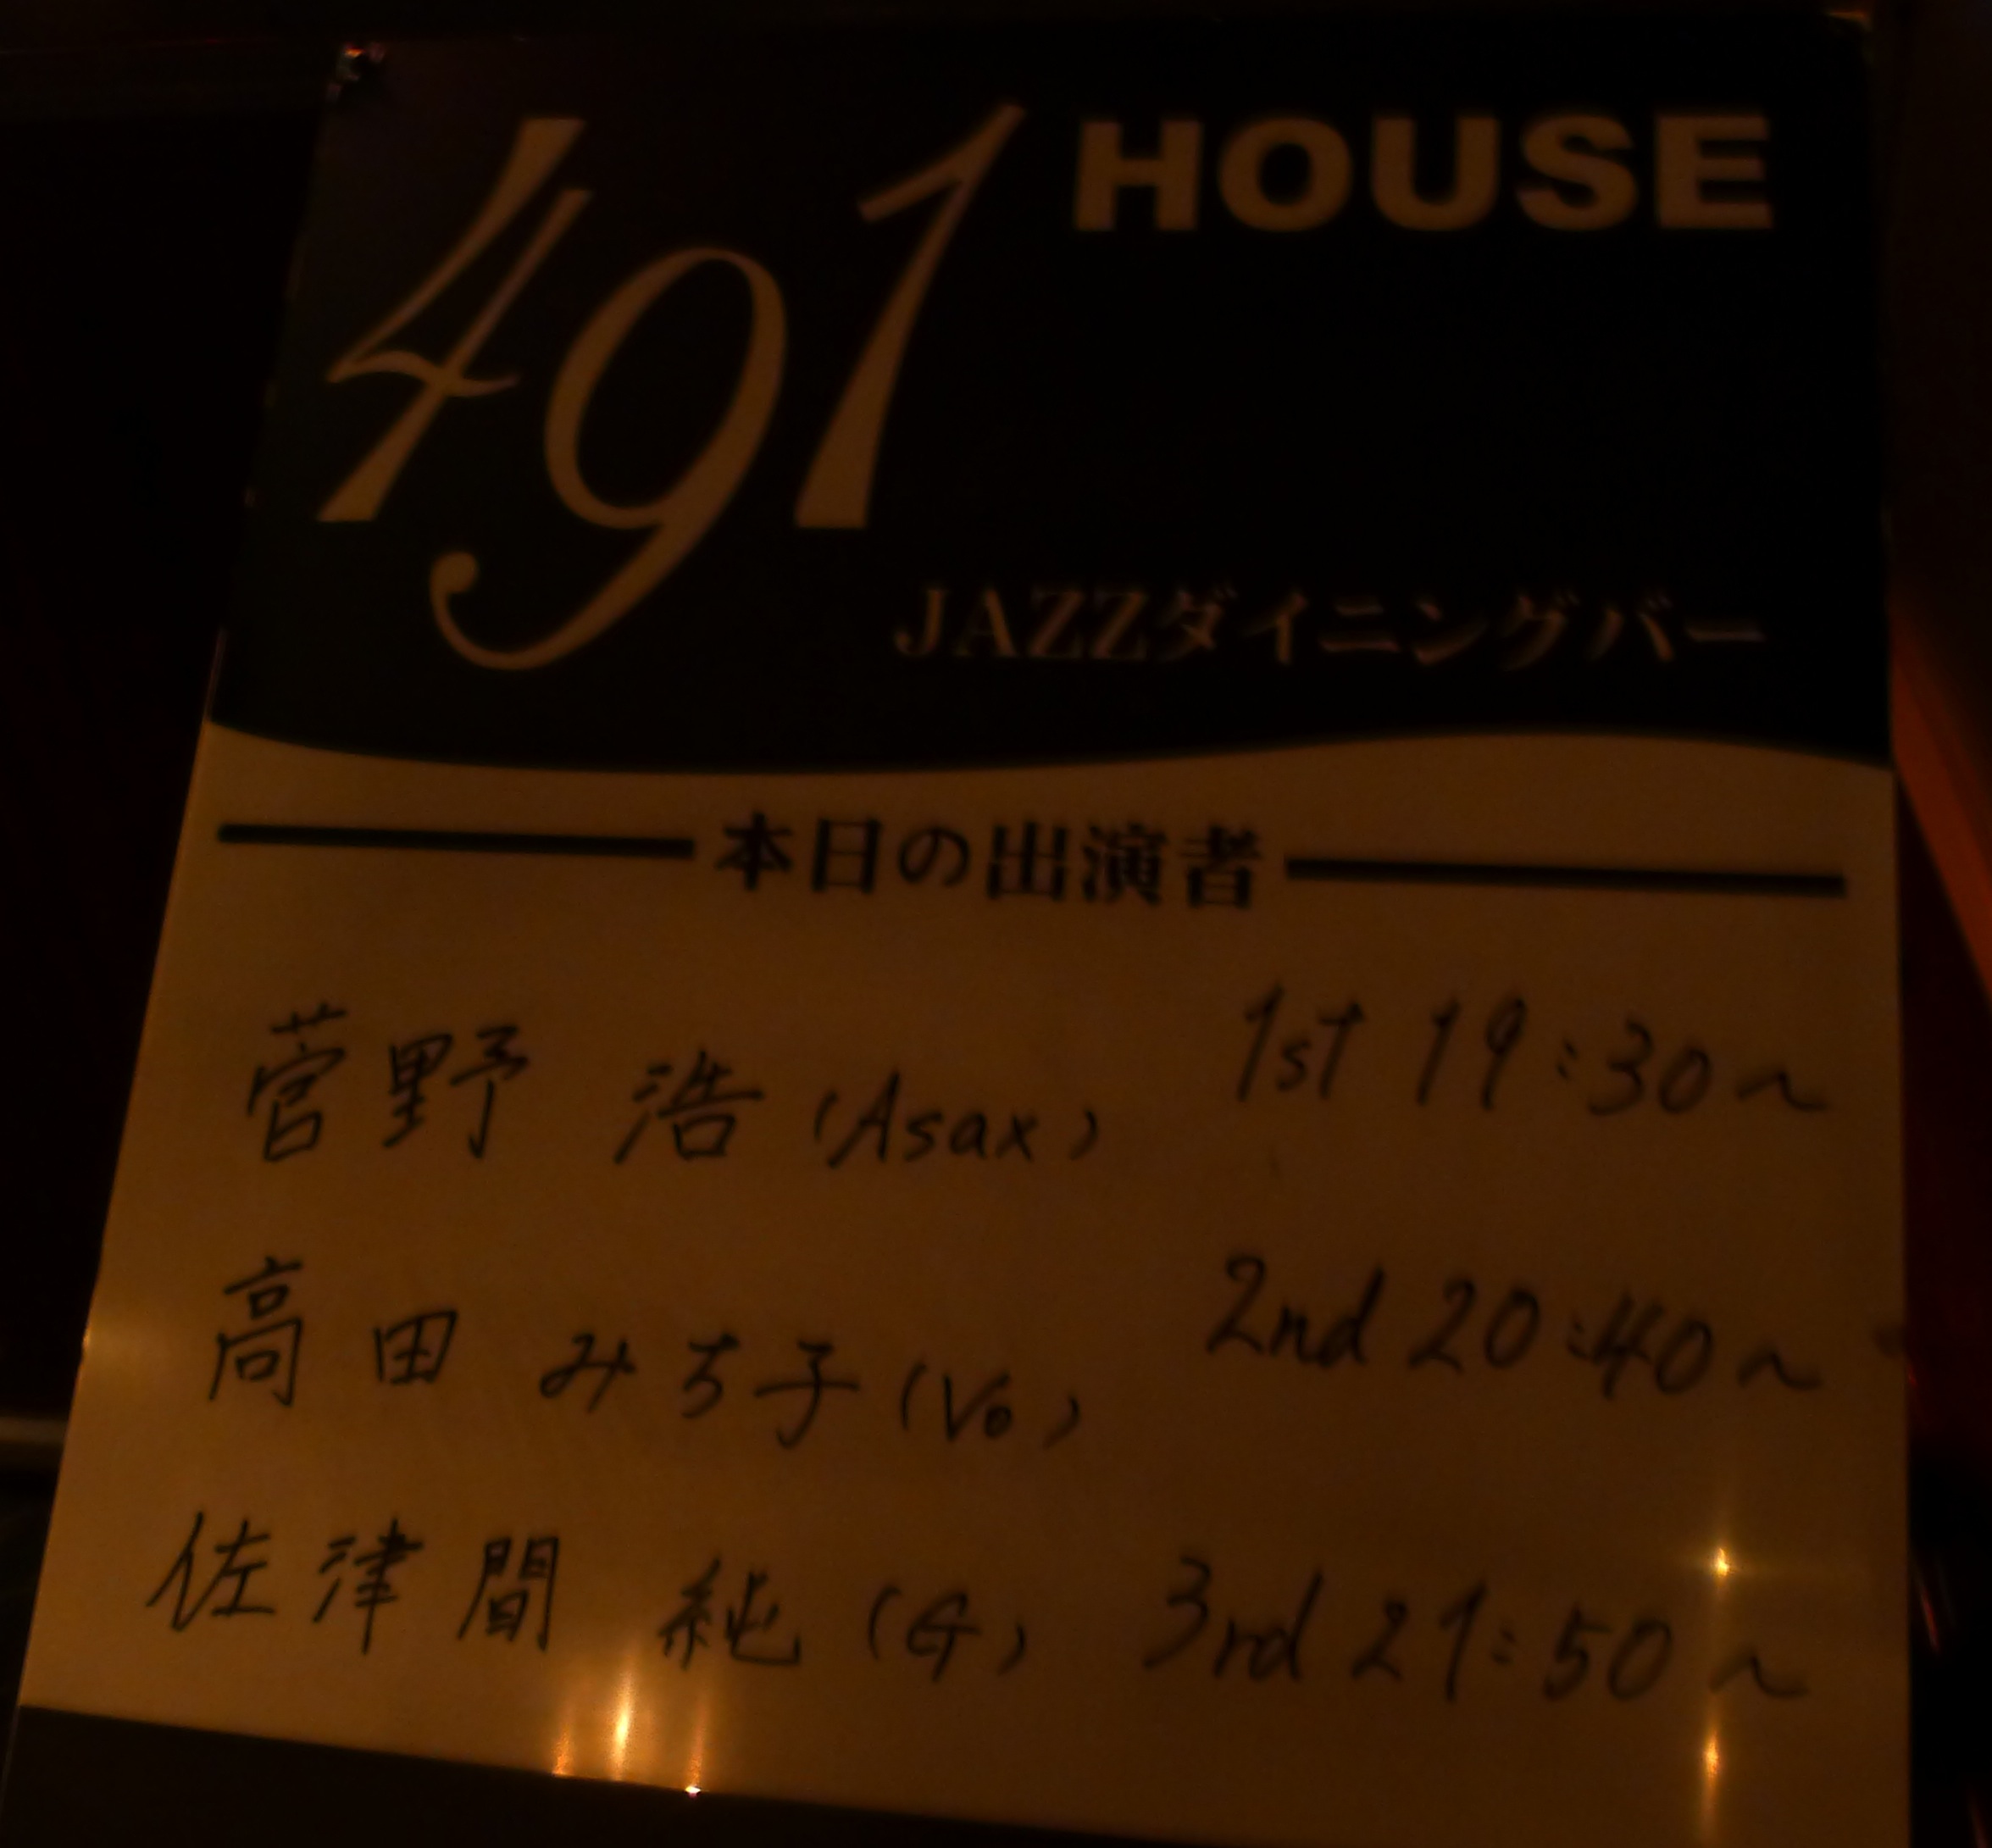 491 HOUSE
JAZZダイニングバー
本日の出演者
菅野 浩 (Asax) 1st 19:30~
高田 みち子 (Vo) 2nd 20:40~
佐津間 純 (G) 3rd 21:50~